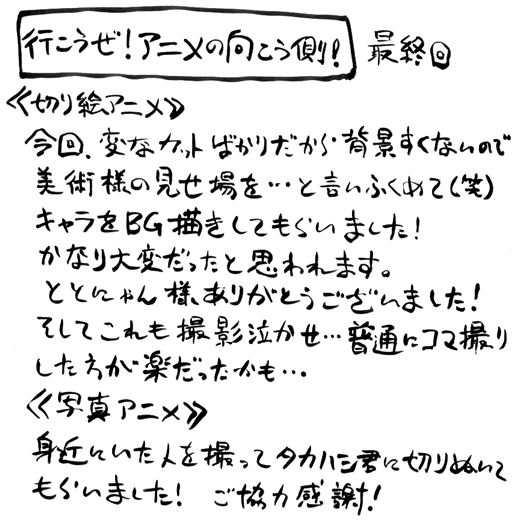 行こうぜ!アニメの向こう側! 最終回
≪切り絵アニメ≫
今回、変なカットばかりだから背景すくないので
美術様の見せ場を…と言いふくめて(笑)
キャラをBG描きしてもらいました!
かなり大変だったと思われます。
ととにゃん様、ありがとうございました!
そしてこれも撮影泣かせ…普通にコマ撮り
した方が楽だったかも…
≪写真アニメ≫
身近にいた人を撮ってタカハシ君に切りぬいて
もらいました! ご協力感謝!